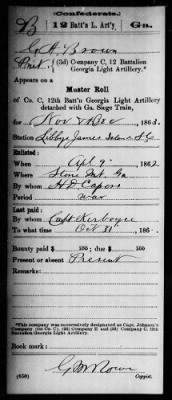 (Confederate.)
B 12 Batt'n L. Art'y. Ga.
G A Brown
Pvt., (3d) Company C, 12 Battalion
Georgia Light Artillery.*
Appears on a
Muster Roll
of Co. C, 12th Batt'n Georgia Light Artillery
detached with Ga. Siege Train,
for Nov & Dec, 1863.
Station James Island S.C.
Enlisted:
When Apl 9, 1862
Where Stone Mt. Ga
By whom H. D. Capers
Period War
Last paid:
By whom Capt
To what time Oct 31, 186
Bounty paid $ 100; due $ 100
Present or absent Present
Remarks:
*This company was successively designated as Capt. Johnson's
Georgia Light Artillery.
Book mark:
(650) Copyist.